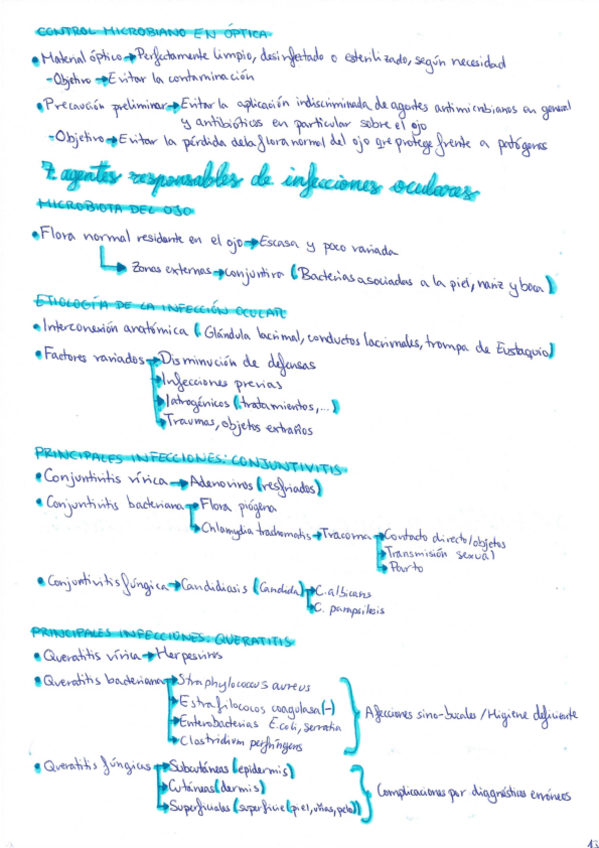 CONTROL MICROBIANO EN ÓPTICA
• Material óptico → Perfectamente limpio, desinfectado o esterilizado, según necesidad
- Objetivo → Evitar la contaminación
• Precaución preliminar → Evitar la aplicación indiscriminada de agentes antimicrobianos en general
y antibióticos en particular sobre el ojo
- Objetivo → Evitar la pérdida de la flora normal del ojo que protege frente a patógenos
7. agentes responsables de infecciones oculares
MICROBIOTA DEL OJO
• Flora normal residente en el ojo → Escasa y poco variada
→ Zonas externas → conjuntiva (Bacterias asociadas a la piel, nariz y boca)
ETIOLOGÍA DE LA INFECCIÓN OCULAR
• Interconexión anatómica (Glándula lacrimal, conductos lacrimales, trompa de Eustaquio)
• Factores variados → Disminución de defensas
→ Infecciones previas
→ Iatrogénicos (tratamientos,...)
→ Traumas, objetos extraños
PRINCIPALES INFECCIONES: CONJUNTIVITIS
• Conjuntivitis vírica → Adenovirus (resfriados)
• Conjuntivitis bacteriana → Flora piógena
→ Chlamydia trachomatis → Tracoma → Contacto directo/objetos
→ Transmisión sexual
→ Parto
• Conjuntivitis fúngica → Candidiasis (Candida) → C. albicans
→ C. parapsilosis
PRINCIPALES INFECCIONES: QUERATITIS
• Queratitis vírica → Herpesvirus
• Queratitis bacteriana → Straphylococcus aureus
→ Estafilococos coagulasa (-)
→ Enterobacterias E. coli, serratia
→ Clostridium perfringens
Afecciones sino-bucales / Higiene deficiente
• Queratitis fúngicas → Subcutáneas (epidermis)
→ Cutáneas (dermis)
→ Superficiales (superficie (piel, uñas, pelo))
Complicaciones por diagnósticos erróneos